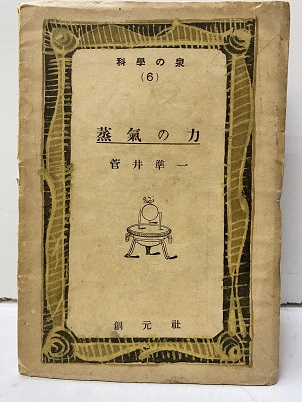 科學の泉
(6)
蒸氣の力
菅井準一
創元社